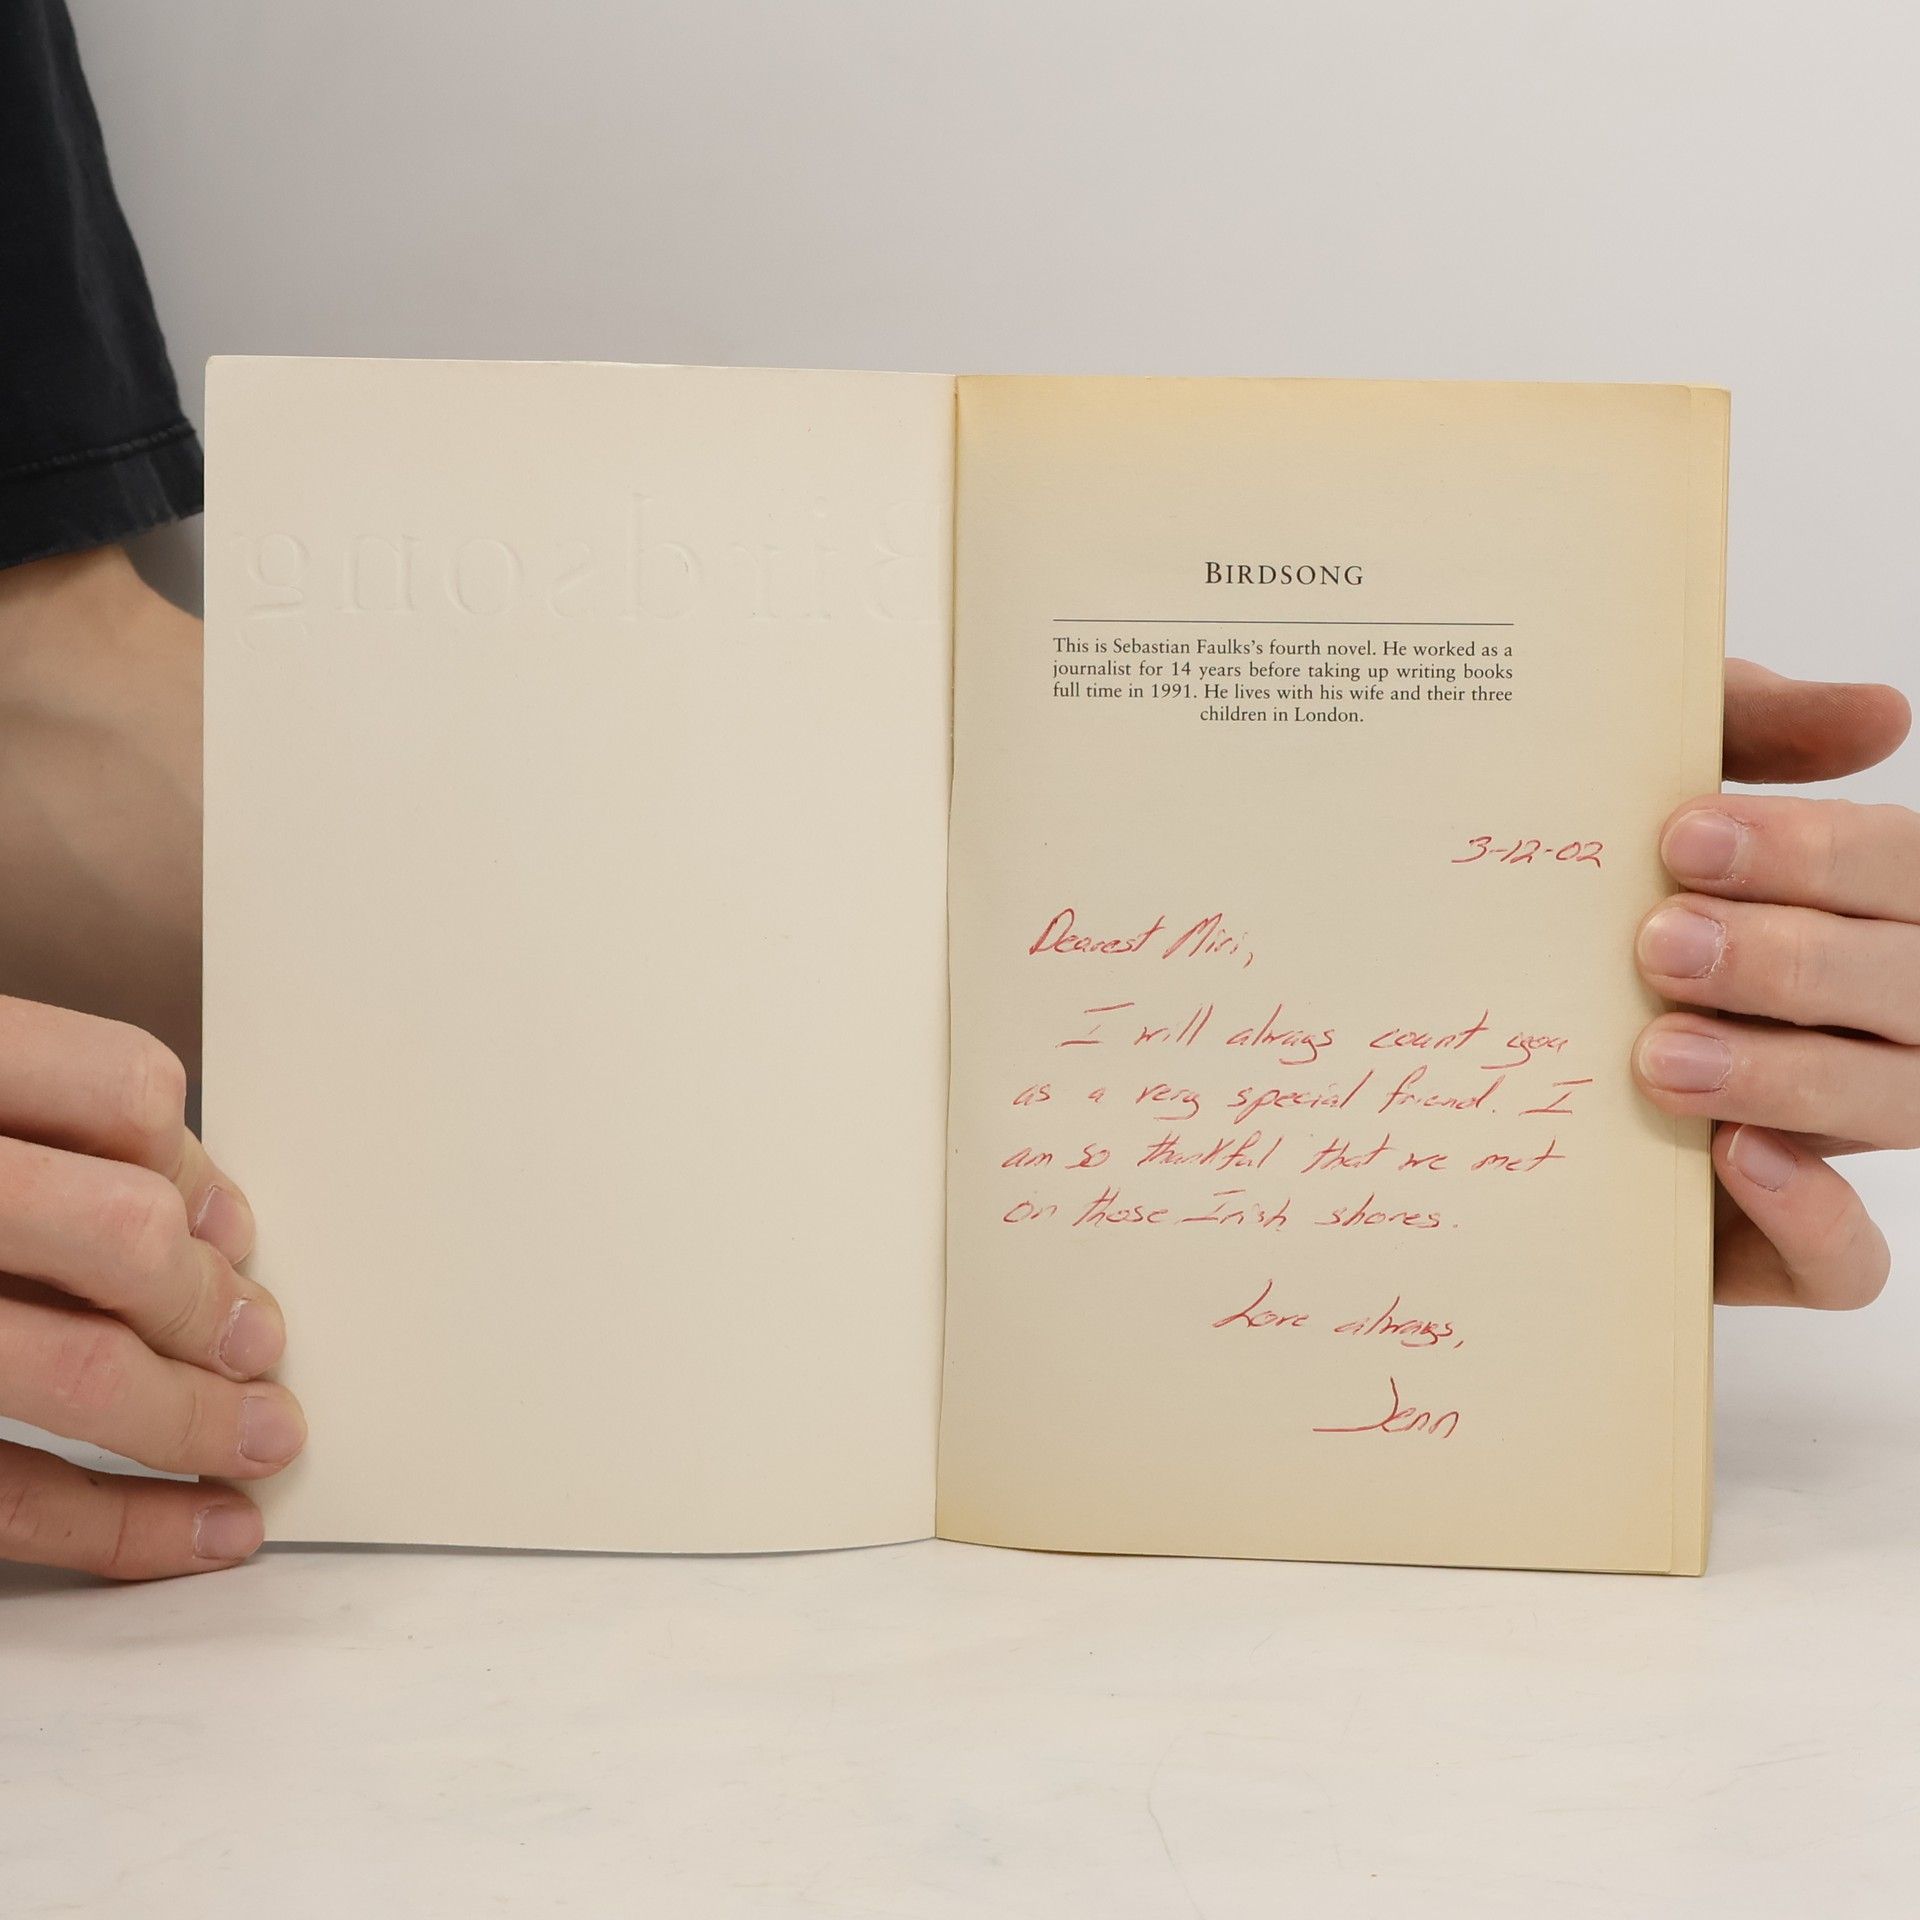 Birdsong
BIRDSONG
This is Sebastian Faulks's fourth novel. He worked as a
journalist for 14 years before taking up writing books
full time in 1991. He lives with his wife and their three
children in London.
3-12-02
Dearest Miri,
I will always count you
as a very special friend. I
am so thankful that we met
on those Irish shores.
Love always,
Jenn